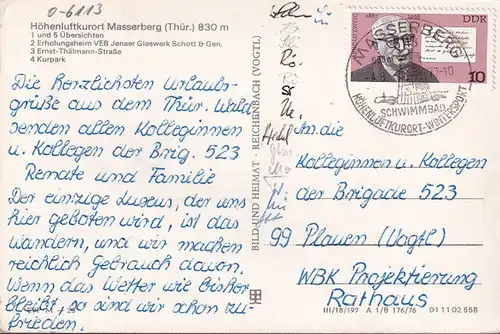 0-6113
Höhenluftkurort Masserberg (Thür.) 830 m
1 und 5 Übersichten
2 Erholungsheim VEB Jenaer Glaswerk Schott & Gen.
3 Ernst-Thälmann-Straße
4 Kurpark
Die herzlichsten Urlaubs-
grüße aus dem Thür. Wald
senden allen Kolleginnen
u. Kollegen der Brig. 523
Renate und Familie
Der einzige Luxus, der uns
hier geboten wird, ist das
Wandern, und wir machen
reichlich Gebrauch davon.
Wenn das Wetter wie bisher
bleibt, so sind wir schon zu-
frieden.
BILD UND HEIMAT · REICHENBACH (VOGTL)
DDR
10
MASSERBERG
SCHWIMMBAD
HÖHENLUFTKURORT-WINTERSPORT
An die
Kolleginnen u. Kollegen
der Brigade 523
99 Plauen (Vogtl)
WBK Projektierung
Rathaus
III/18/197 A 1/B 176/76 01 11 02 558